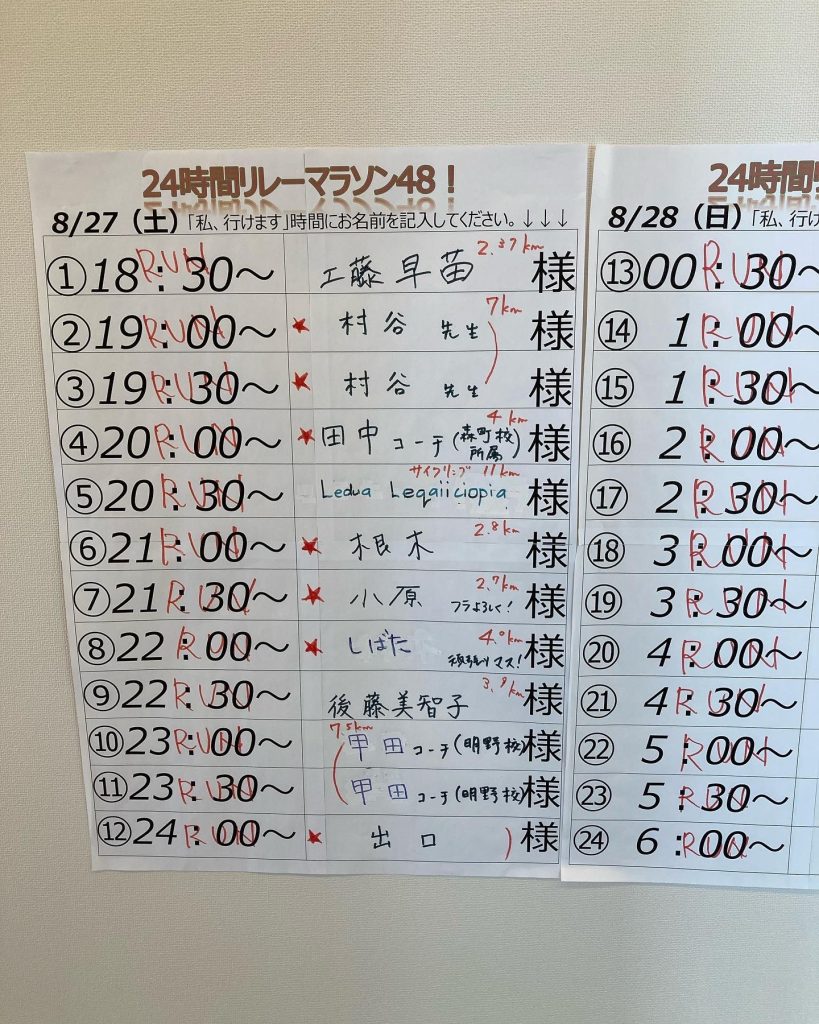 24時間リレーマラソン48！
8/27（土）「私、行けます」時間にお名前を記入してください。↓↓↓
①18：30～ RUN 工藤早苗 2.37km 様
②19：00～ RUN ★ 村谷 先生 7km 様
③19：30～ RUN ★ 村谷 先生 様
④20：00～ RUN ★ 田中コーチ（森町校所属） 4km 様
⑤20：30～ RUN Ledua Leqaiiciopia サイクリング 11km 様
⑥21：00～ RUN ★ 根木 2.8km 様
⑦21：30～ RUN ★ 小原 2.7km フラよろしく！ 様
⑧22：00～ RUN ★ しばた 4.0km 頑張リマス！ 様
⑨22：30～ RUN 後藤美智子 3.9km 様
⑩23：00～ RUN 7.5km 甲田コーチ（明野校） 様
⑪23：30～ RUN 甲田コーチ（明野校） 様
⑫24：00～ RUN ★ 出口 様
24時間
8/28（日）「私、行け
⑬00：30～ RUN
⑭1：00～ RUN
⑮1：30～ RUN
⑯2：00～ RUN
⑰2：30～ RUN
⑱3：00～ RUN
⑲3：30～ RUN
⑳4：00～ RUN
㉑4：30～ RUN
㉒5：00～ RUN
㉓5：30～ RUN
㉔6：00～ RUN